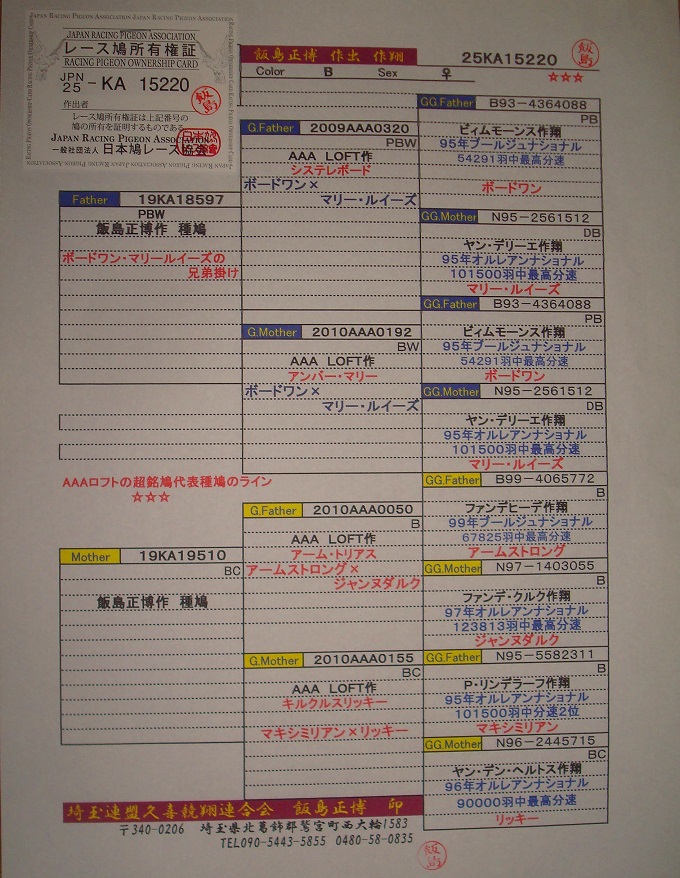 JAPAN RACING PIGEON ASSOCIATION
レース鳩所有権証
RACING PIGEON OWNERSHIP CARD
JPN
25 - KA 15220
作出者
レース鳩所有権証は上記番号の
鳩の所有を証明するものである
JAPAN RACING PIGEON ASSOCIATION
一般社団法人 日本鳩レース協会
飯島正博 作出 作翔 25KA15220
飯島
Color B Sex ♀
☆☆☆
Father 19KA18597
PBW
飯島正博作 種鳩
ボードワン・マリールイーズの
兄弟掛け
AAAロフトの超銘鳩代表種鳩のライン
☆☆☆
Mother 19KA19510
BC
飯島正博作 種鳩
G.Father 2009AAA0320
PBW
AAA LOFT作
システレボード
ボードワン×
マリー・ルイーズ
G.Mother 2010AAA0192
BW
AAA LOFT作
アンバー・マリー
ボードワン×
マリー・ルイーズ
G.Father 2010AAA0050
B
AAA LOFT作
アーム・トリアス
アームストロング×
ジャンヌダルク
G.Mother 2010AAA0155
BC
AAA LOFT作
キルクルスリッキー
マキシミリアン×リッキー
GG.Father B93-4364088
PB
ビィムモーンス作翔
95年ブールジュナショナル
54291羽中最高分速
ボードワン
GG.Mother N95-2561512
DB
ヤン・デリーエ作翔
95年オルレアンナショナル
101500羽中最高分速
マリー・ルイーズ
GG.Father B93-4364088
PB
ビィムモーンス作翔
95年ブールジュナショナル
54291羽中最高分速
ボードワン
GG.Mother N95-2561512
DB
ヤン・デリーエ作翔
95年オルレアンナショナル
101500羽中最高分速
マリー・ルイーズ
GG.Father B99-4065772
B
ファンデヒーデ作翔
99年ブールジュナショナル
67825羽中最高分速
アームストロング
GG.Mother N97-1403055
B
ファンデ・クルク作翔
97年オルレアンナショナル
123813羽中最高分速
ジャンヌダルク
GG.Father N95-5582311
B
P・リンデラーフ作翔
95年オルレアンナショナル
101500羽中分速2位
マキシミリアン
GG.Mother N96-2445715
BC
ヤン・デン・ヘルトス作翔
96年オルレアンナショナル
90000羽中最高分速
リッキー
埼玉連盟久喜競翔連合会 飯島正博 印
〒340-0206 埼玉県北葛飾郡鷲宮町西大輪1583
TEL090-5443-5855 0480-58-0835
飯島